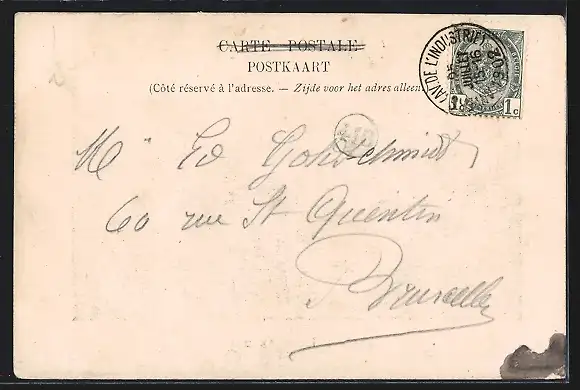 CARTE POSTALE
POSTKAART
(Côté réservé à l'adresse. — Zijde voor het adres alleen
(AV. DE L'INDUSTRIE)
JUILLET
1c
Mr Ed Goldschmidt
60 rue St Quentin
Bruxelles